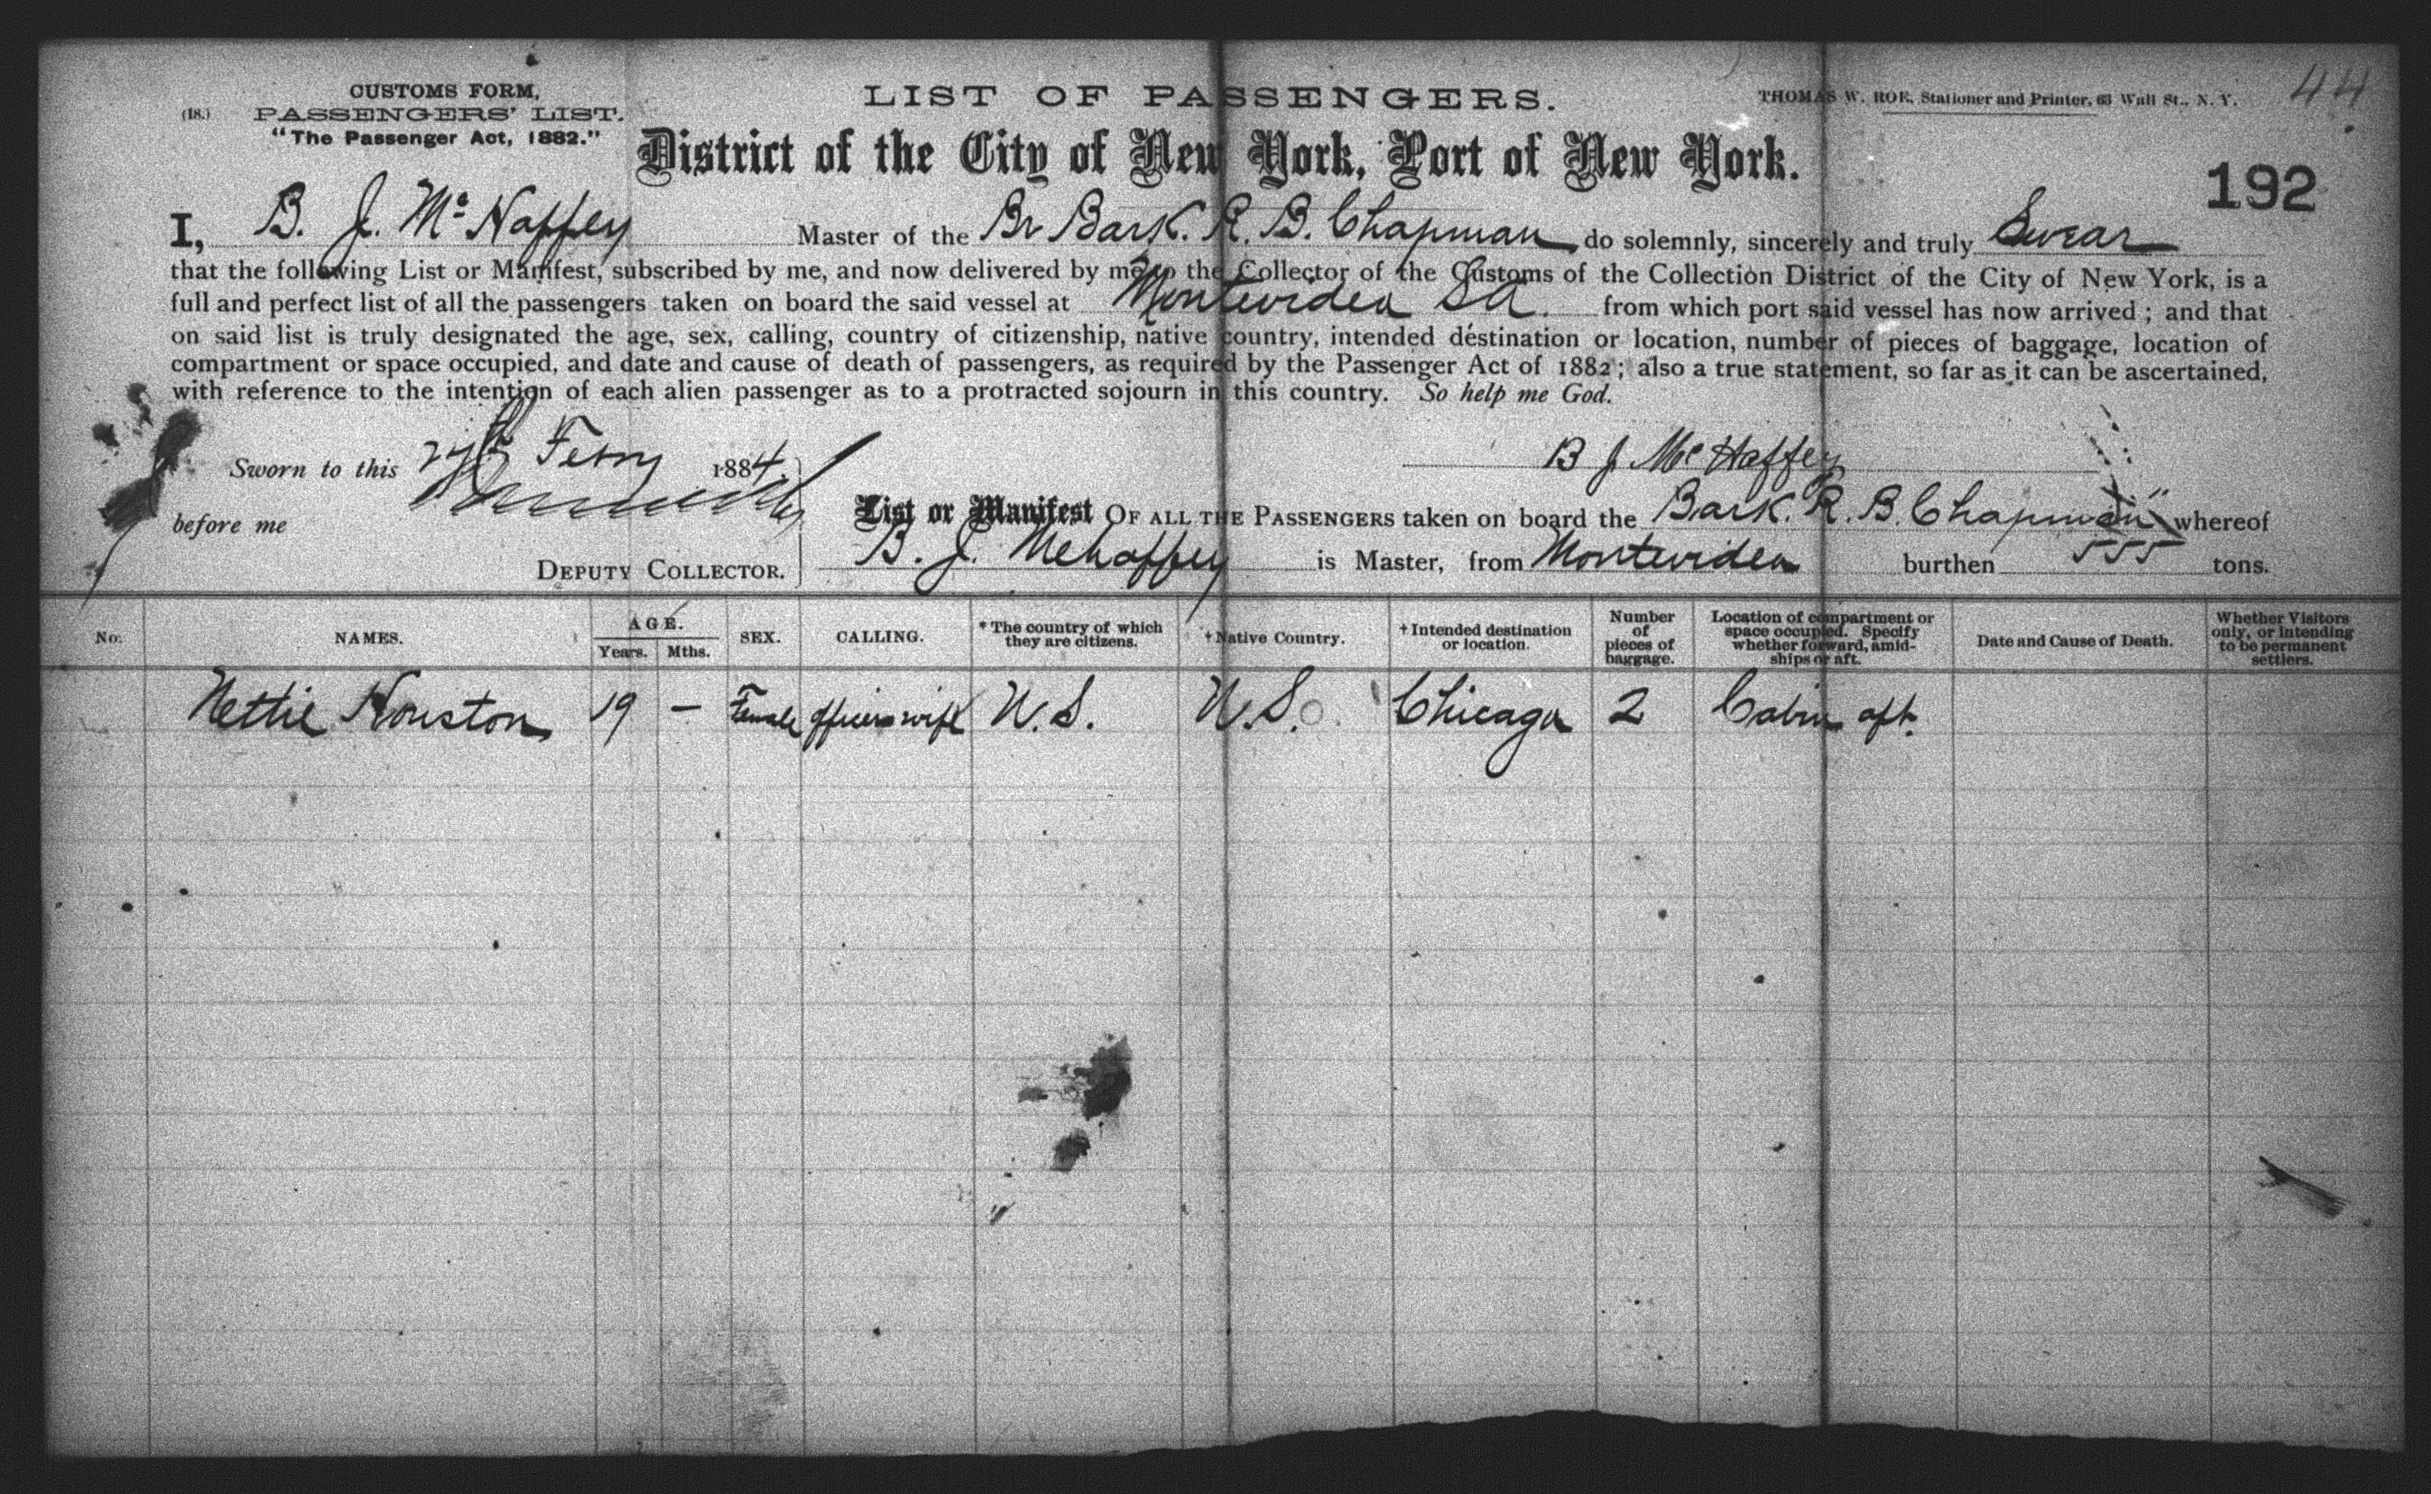 44
CUSTOMS FORM,
(18.) PASSENGERS' LIST.
"The Passenger Act, 1882."
LIST OF PASSENGERS.
THOMAS W. ROE, Stationer and Printer, 63 Wall St., N. Y.
District of the City of New York, Port of New York.
192
I, B. J. Mc Haffey Master of the Br Bark. R. B. Chapman do solemnly, sincerely and truly Swear
that the following List or Manifest, subscribed by me, and now delivered by me to the Collector of the Customs of the Collection District of the City of New York, is a
full and perfect list of all the passengers taken on board the said vessel at Montevideo SA. from which port said vessel has now arrived; and that
on said list is truly designated the age, sex, calling, country of citizenship, native country, intended destination or location, number of pieces of baggage, location of
compartment or space occupied, and date and cause of death of passengers, as required by the Passenger Act of 1882; also a true statement, so far as it can be ascertained,
with reference to the intention of each alien passenger as to a protracted sojourn in this country. So help me God.
Sworn to this 27th 1884.
B J McHaffey
before me
List or Manifest OF ALL THE PASSENGERS taken on board the Bark. R. B. Chapman" whereof
DEPUTY COLLECTOR.
B. J. Mehaffey is Master, from Montevideo burthen 555 tons.
No. NAMES. AGE. Years. Mths. SEX. CALLING. * The country of which they are citizens. † Native Country. † Intended destination or location. Number of pieces of baggage. Location of compartment or space occupied. Specify whether forward, amidships or aft. Date and Cause of Death. Whether Visitors only, or intending to be permanent settlers.
Nettie Houston 19 – Female officers wife U.S. U.S. Chicago 2 Cabin aft.